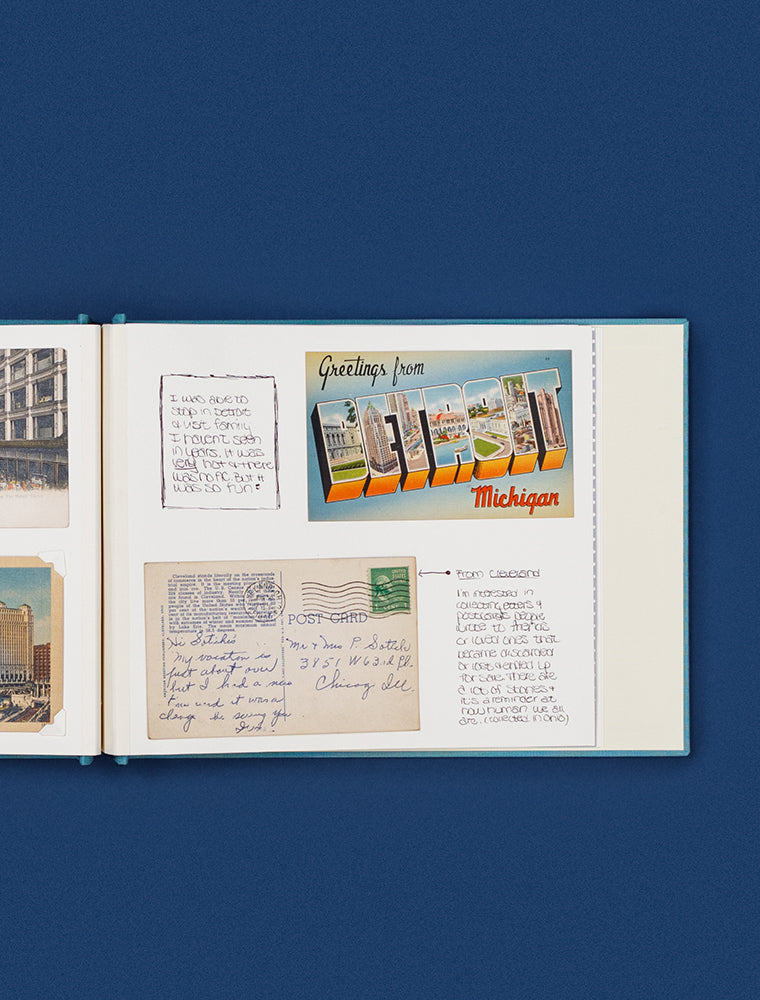 I was able to
stop in Detroit
& visit family
I haven't seen
in years. It was
very hot & there
was no AC. But it
was so fun
Greetings from
DETROIT
Michigan
Cleveland stands literally on the crossroads
of commerce in the heart of the nation's indus-
trial empire. It is the meeting place
POST CARD
Hi Sotiks
My vacation is
just about over
but I had a nice
time and it was a
change be seeing you
Mr & Mrs P. Sotik
3851 W 63rd Pl.
Chicago Ill.
From Cleveland
I'm interested in
collecting letters &
postcards people
wrote to friends
or loved ones that
became discarded
or lost & ended up
for sale. There are
a lot of stories &
it's a reminder at
how human we all
are. (collected in Ohio)